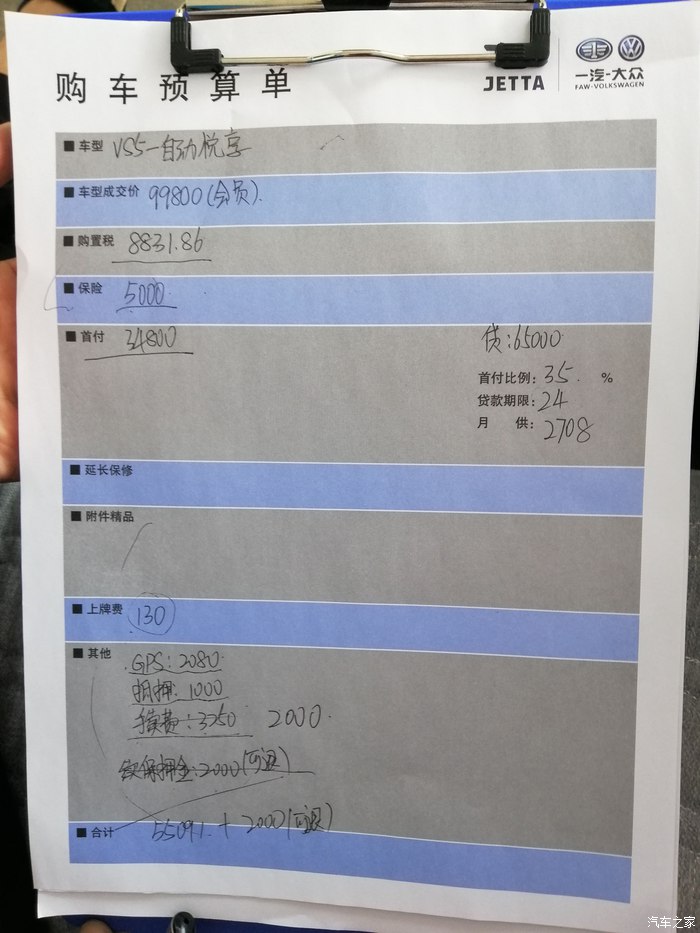 购车预算单
JETTA
一汽-大众
FAW-VOLKSWAGEN
■ 车型 VS5-自动悦享
■ 车型成交价 99800(会员).
■ 购置税 8831.86
■ 保险 5000
■ 首付 34800
贷:65000
首付比例: 35. %
贷款期限: 24
月 供: 2708
■ 延长保修
■ 附件精品
■ 上牌费 130
■ 其他
GPS:2080
抵押:1000
手续费:3250 2000.
续保押金:2000(可退)
■ 合计 55091.+2000(可退)
汽车之家